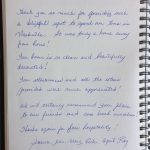 Thank you so much for providing such
a delightful spot to spend our time in
Nashville. It was truly a home away
from home!
Your home is so clean and beautifully
decorated!
Your attentiveness and all the extra
provided were much appreciated!
We will certainly recommend your place
to our friends and come back ourselves.
Thanks again for your hospitality!